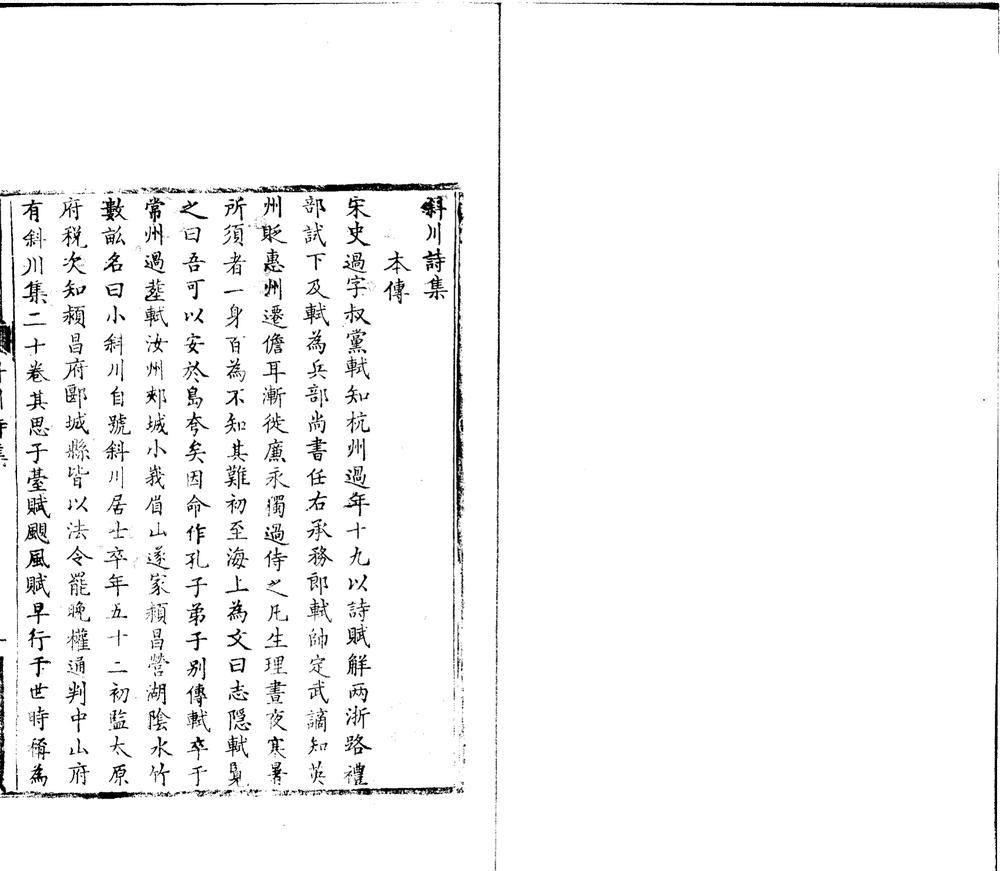 斜川詩集
本傳
宋史過字叔黨軾知杭州過年十九以詩賦解兩浙路禮
部試下及軾為兵部尚書任右承務郎軾帥定武謫知英
州貶惠州遷儋耳漸徙廉永獨過侍之凡生理晝夜寒暑
所須者一身百為不知其難初至海上為文曰志隱軾覽
之曰吾可以安於島夸矣因命作孔子弟子别傳軾卒于
常州過塟軾汝州郟城小峩眉山遂家頴昌營湖陰水竹
數畝名曰小斜川自號斜川居士卒年五十二初監太原
府税次知頴昌府郾城縣皆以法令罷晚權通判中山府
有斜川集二十卷其思子臺賦颶風賦早行于世時稱為